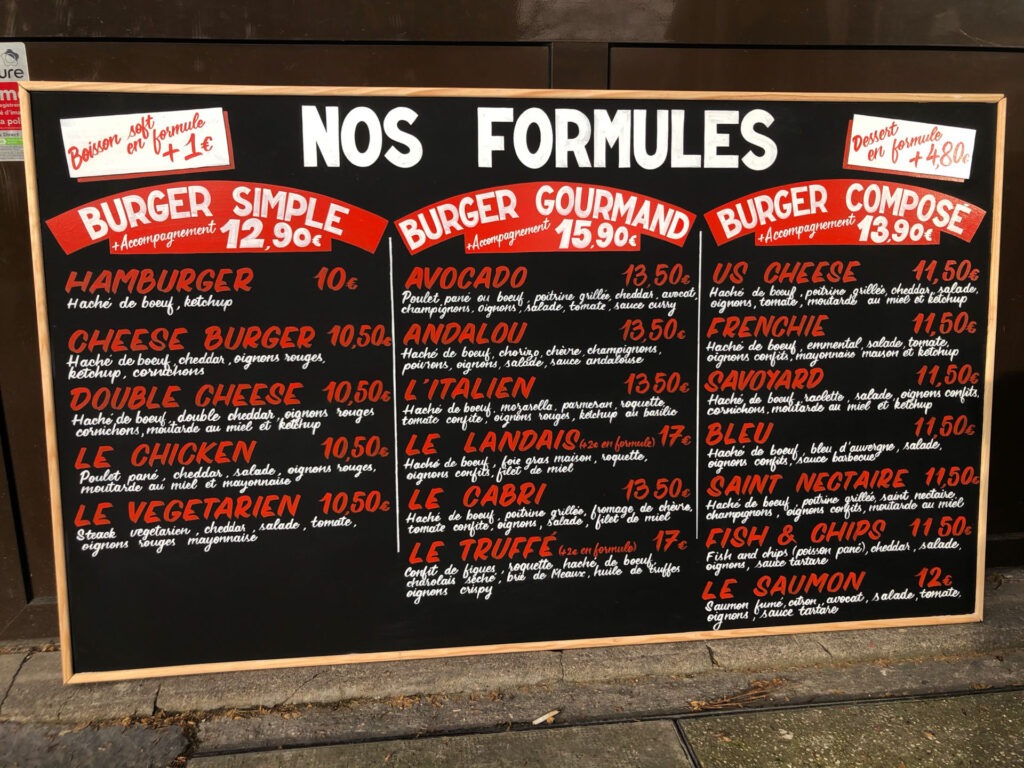 ure
Boisson soft
en formule
+ 1€
NOS FORMULES
Dessert
en formule
+ 4,80€
BURGER SIMPLE
+Accompagnement 12,90€
HAMBURGER 10€
Haché de boeuf, ketchup
CHEESE BURGER 10,50€
Haché de boeuf, cheddar, oignons rouges,
ketchup, cornichons
DOUBLE CHEESE 10,50€
Haché de boeuf, double cheddar, oignons rouges
cornichons, moutarde au miel et ketchup
LE CHICKEN 10,50€
Poulet pané, cheddar, salade, oignons rouges,
moutarde au miel et mayonnaise
LE VEGETARIEN 10,50€
Steack vegetarien, cheddar, salade, tomate,
oignons rouges mayonnaise
BURGER GOURMAND
+Accompagnement 15,90€
AVOCADO 13,50€
Poulet pané ou boeuf, poitrine grillée, cheddar, avocat,
champignons, oignons, salade, tomate, sauce curry
ANDALOU 13,50€
Haché de boeuf, chorizo, chèvre, champignons,
poivrons, oignons, salade, sauce andalouse
L'ITALIEN 13,50€
Haché de boeuf, mozarella, parmesan, roquette,
tomate confite, oignons rouges, ketchup au basilic
LE LANDAIS (+2€ en formule) 17€
Haché de boeuf, foie gras maison, roquette,
oignons confits, filet de miel
LE CABRI 13,50€
Haché de boeuf, poitrine grillée, fromage de chèvre,
tomate confite, oignons, salade, filet de miel
LE TRUFFÉ (+2€ en formule) 17€
Confit de figues, roquette, haché, de boeuf,
charolais séché, brie de Meaux, huile de truffes
oignons crispy
BURGER COMPOSÉ
+Accompagnement 13,90€
US CHEESE 11,50€
Haché de boeuf, poitrine grillée, cheddar, salade,
oignons, tomate, moutarde au miel et ketchup
FRENCHIE 11,50€
Haché de boeuf, emmental, salade, tomate,
oignons confits, mayonnaise maison et ketchup
SAVOYARD 11,50€
Haché de boeuf, raclette, salade, oignons confits,
cornichons, moutarde au miel et ketchup
BLEU 11,50€
Haché de boeuf, bleu d'auvergne, salade,
oignons confits, sauce barbecue
SAINT NECTAIRE 11,50€
Haché de boeuf, poitrine grillée, saint nectaire,
champignons, oignons confits, moutarde au miel
FISH & CHIPS 11,50€
Fish and chips (poisson pané), cheddar, salade,
oignons, sauce tartare
LE SAUMON 12€
Saumon fumé, citron, avocat, salade, tomate,
oignons, sauce tartare